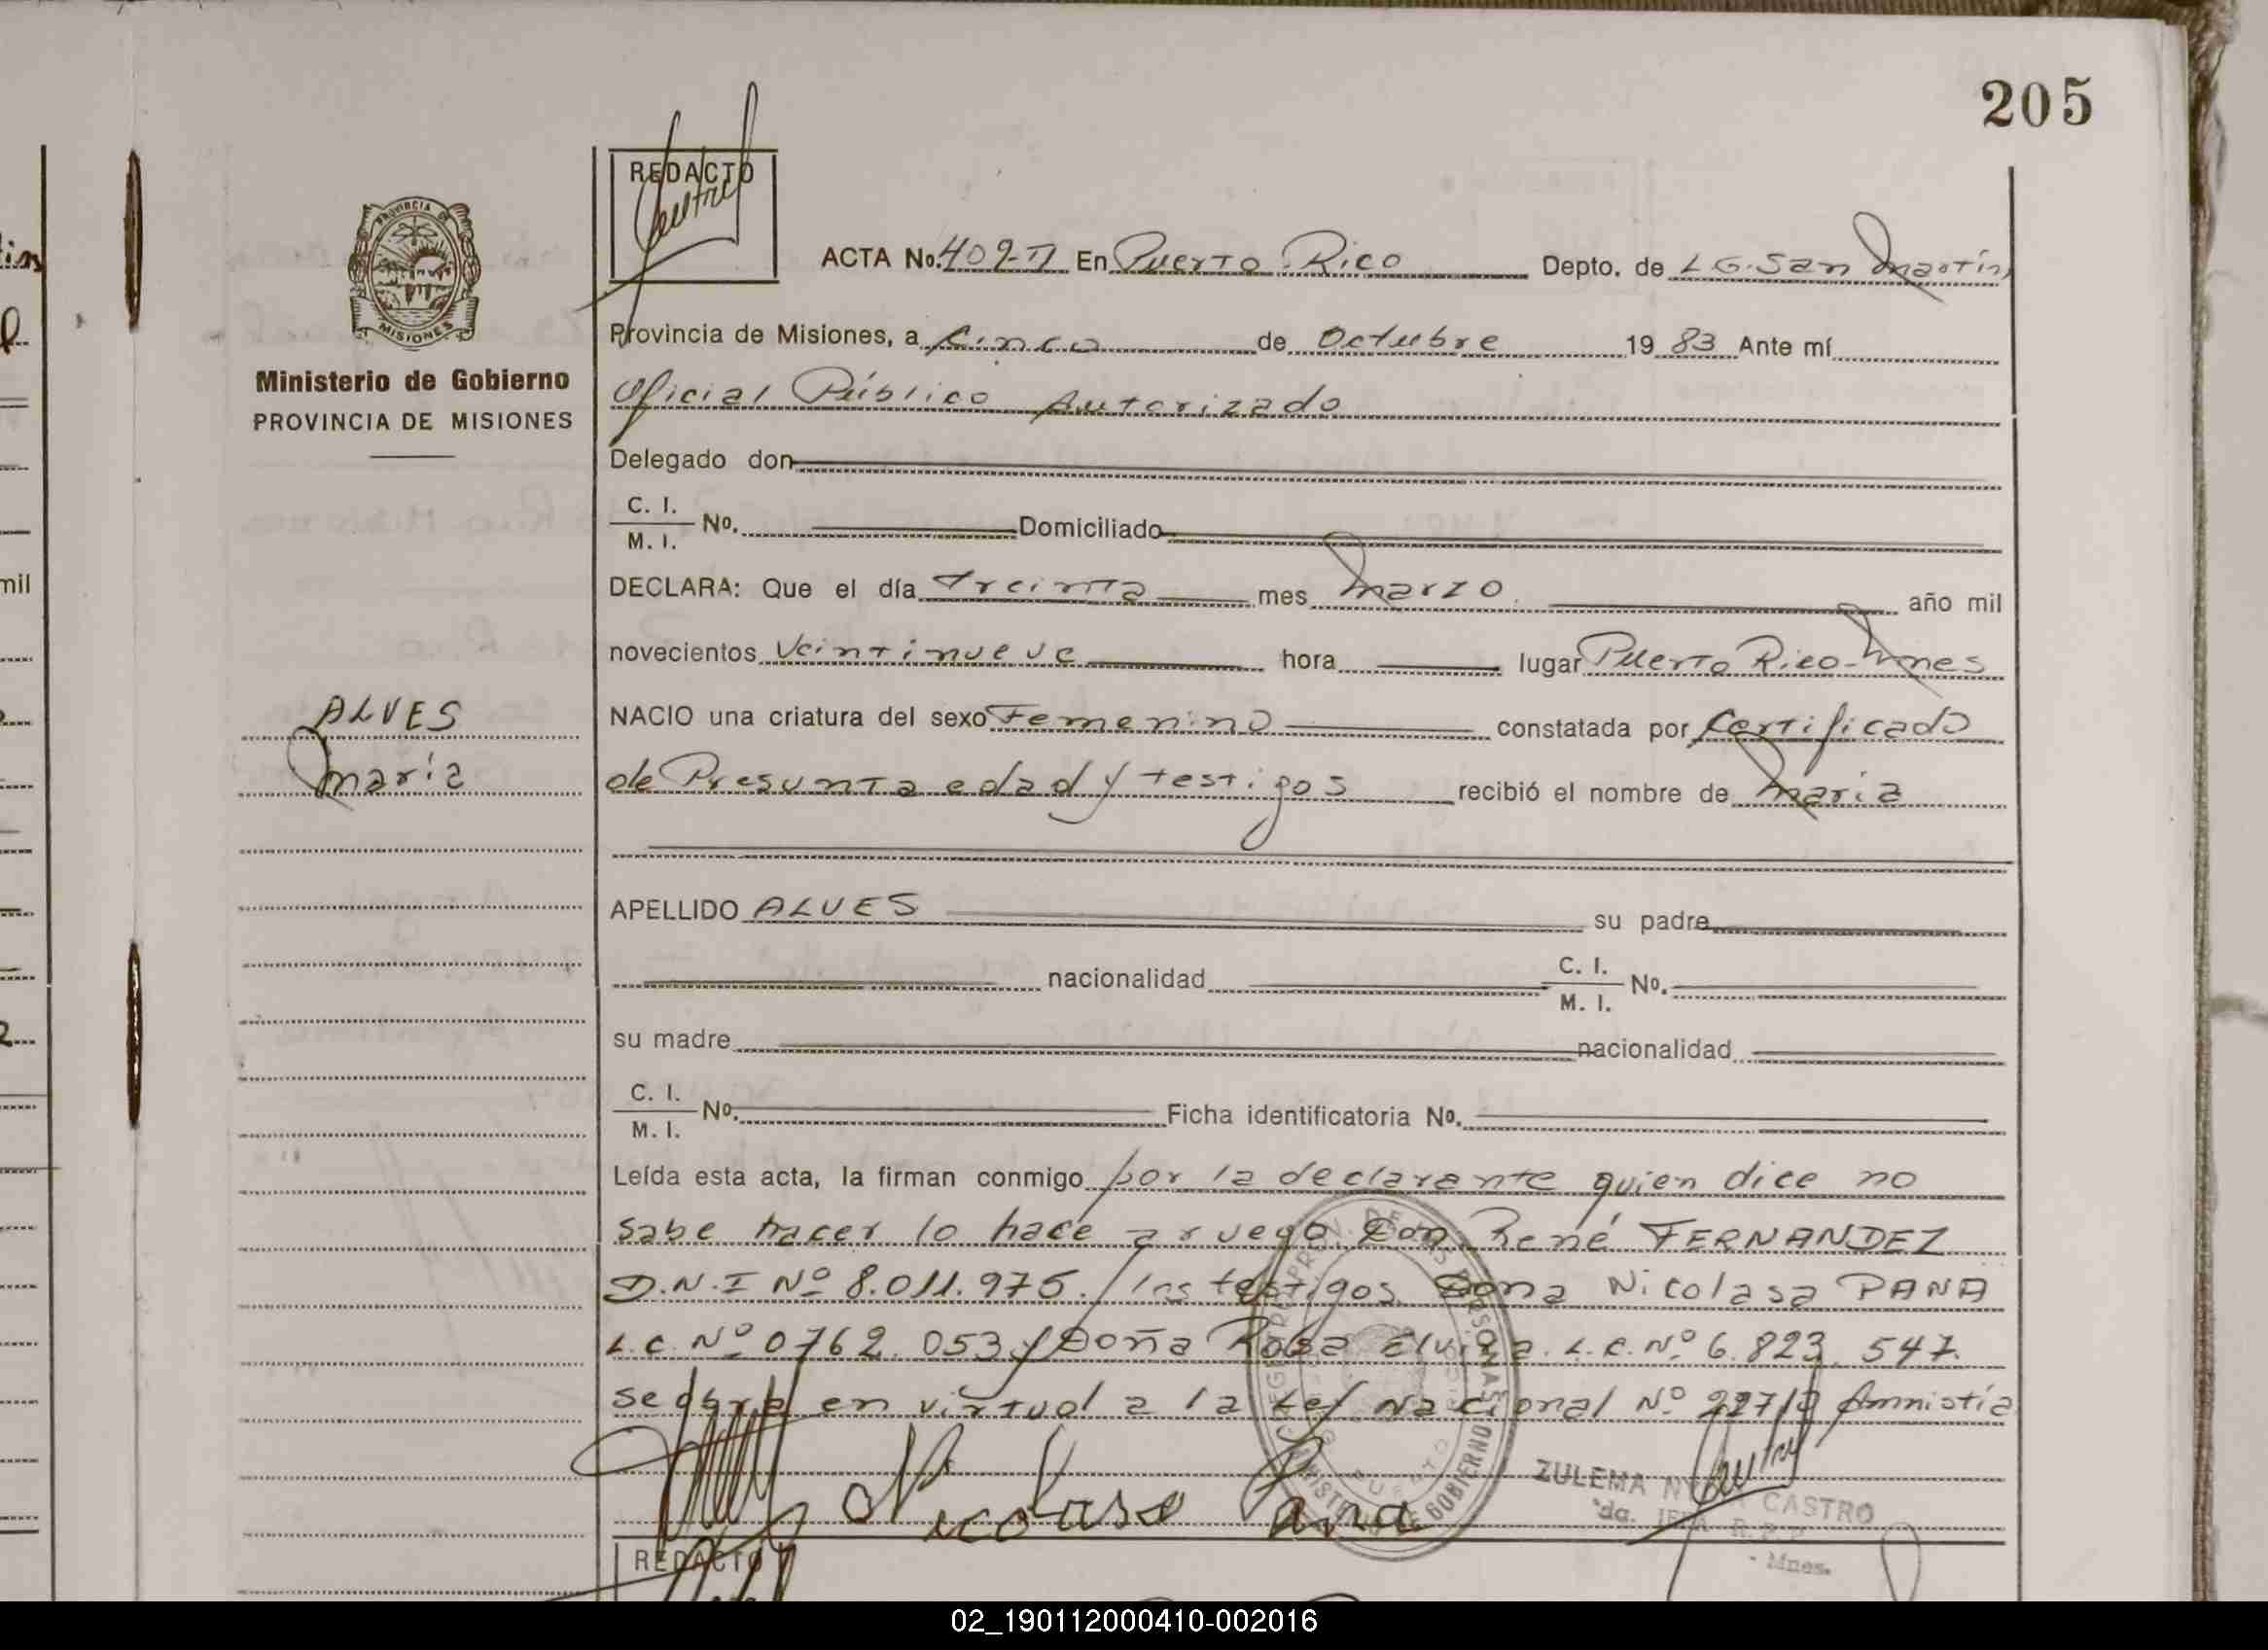 205
REDACTO
PROVINCIA DE
MISIONES
Ministerio de Gobierno
PROVINCIA DE MISIONES
ACTA No. 409-II En Puerto Rico Depto. de L G. San Martín,
Provincia de Misiones, a Cinco de Octubre 19 83 Ante mí
Oficial Público Autorizado
Delegado don
C. I.
M. I. No. Domiciliado
DECLARA: Que el día treinta mes Marzo año mil
novecientos Veintinueve hora lugar Puerto Rico-Mnes
ALVES
María
NACIO una criatura del sexo Femenino constatada por Certificado
de Presunta edad y testigos recibió el nombre de María
APELLIDO ALVES su padre
nacionalidad C. I.
M. I. No.
su madre nacionalidad
C. I.
M. I. No. Ficha identificatoria No.
Leída esta acta, la firman conmigo por la declarante quien dice no
sabe hacer lo hace a ruego Don René FERNANDEZ
D.N.I Nº 8.011.975. los testigos Doña Nicolasa PANA
L.C. Nº 0762.053 y Doña Rosa L.C. Nº 6.823.547.
se en virtud a la Ley Nacional Nº Amnistía
Nicolasa Pana
ZULEMA CASTRO
- Mnes.
REDACTO
mil
02_190112000410-002016